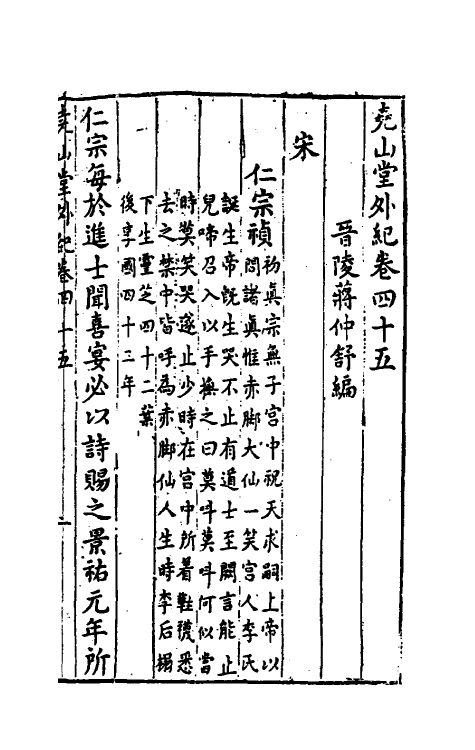 堯山堂外紀卷四十五
晉陵蔣仲舒編
宋
仁宗禎
初真宗無子宮中祝天求嗣上帝以
問諸真惟赤脚大仙一笑宮人李氏
誕生帝既生哭不止有道士至闕言能止
兒啼召入以手撫之曰莫叫莫叫何似當
時莫笑哭遂止少時在宮中所着鞋襪悉
去之禁中皆呼為赤脚仙人生時李后榻
下生靈芝四十二葉
後享國四十二年
仁宗每於進士聞喜宴必以詩賜之景祐元年所
堯山堂外紀卷四十五 一